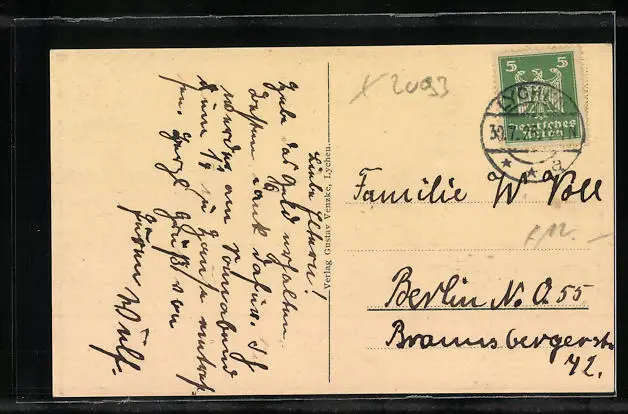 Liebe Eltern!
Habe das Geld erhalten
besten Dank dafür. Ich
werde am Sonnabend
zum 19 zu Hause eintref-
fen. Herzl. Grüße von
Eurem Wulf.
Verlag Gustav Venzke, Lychen.
X 2093
5 5
Deutsches Reich
LYCHEN
30.7.26
a a
Familie W Voll
Berlin N.O. 55
Braunsbergerstr.
42.